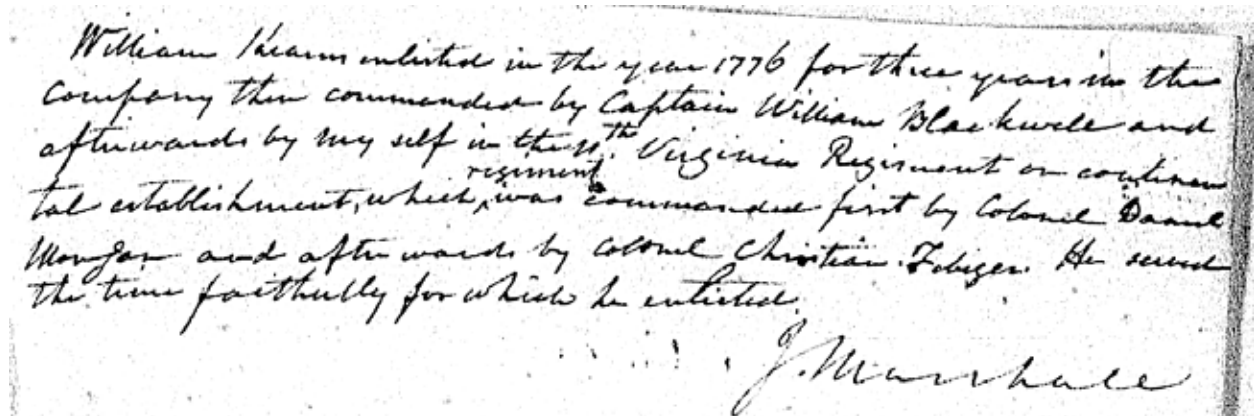 William Kearns enlisted in the year 1776 for three years in the
company then commanded by Captain William Blackwell and
afterwards by my self in the 11th Virginia Regiment on continen
tal establishment, which regiment was commanded first by Colonel Daniel
Morgan and afterwards by Colonel Christian Febiger. He served
the time faithfully for which he enlisted.
J. Marshall